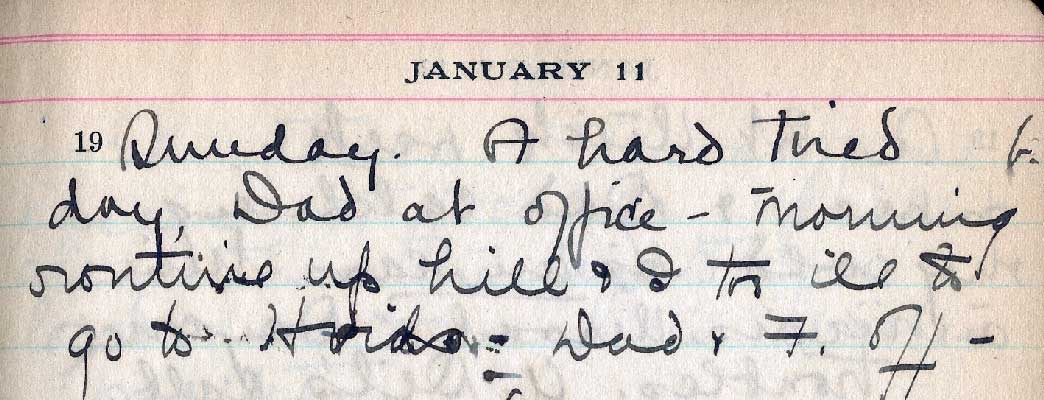 JANUARY 11
19 Sunday. A hard tired
day, Dad at office - morning
routine up hill & I too ill to
go to - Dad & F. off -